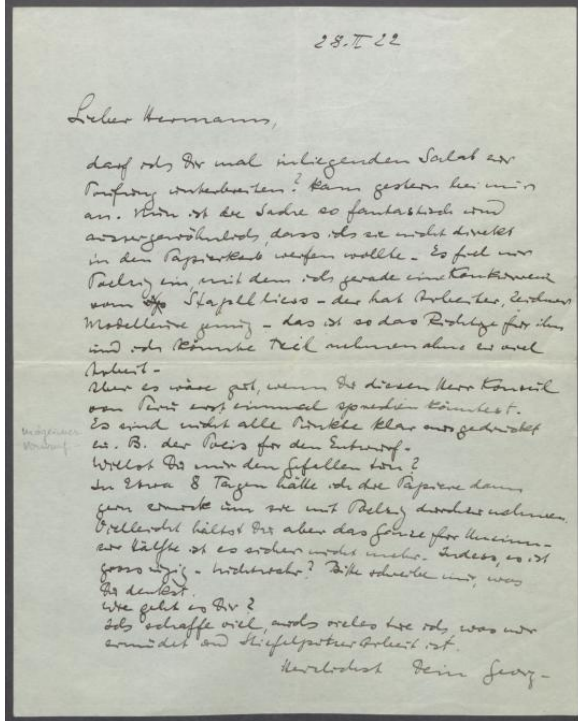 28.II 22
Lieber Hermann,
darf ich Dir mal inliegenden Salat zur
Prüfung unterbreiten? Kam gestern bei mir
an. Nun ist die Sache so fantastisch und
aussergewöhnlich, dass ich sie nicht direkt
in den Papierkorb werfen wollte. Es fiel mir
Poelzig ein, mit dem ich gerade eine Konkurrenz
vom Stapel liess – der hat Arbeiter, Zeichner
Modelleure genug – das ist so das Richtige für ihn
und ich könnte Teil nehmen ohne zu viel
Arbeit –
Aber es wäre gut, wenn Du diesen Herr Konsul
von Peru erst einmal sprechen könntest.
Es sind nicht alle Punkte klar ausgedrückt
z. B. der Preis für den Entwurf.
Willst Du mir den Gefallen tun?
In Etwa 8 Tagen hätte ich die Papiere dann
gern zurück um sie mit Poelzig durchzunehmen.
Vielleicht hältst Du aber das Ganze für Unsinn –
zur Hälfte ist es sicher nicht mehr. Indess, es ist
grosszügig – nichtwahr? Bitte schreibe mir, was
Du denkst.
Wie geht es Dir?
Ich schaffe viel, auch vieles tue ich, was mir
ermüdet und Stiefelputzerarbeit ist.
Herzlichst Dein Georg –